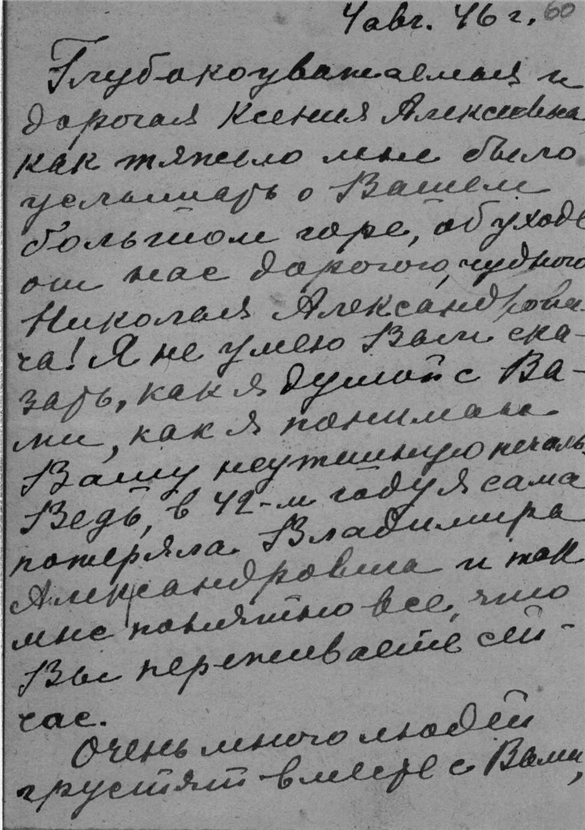 4 авг. 46 г. 60
Глубокоуважаемая и
дорогая Ксения Алексеевна
как тяжело мне было
услышать о Вашем
большом горе, об уходе
от нас дорогого, чудного
Николая Александрови-
ча! Я не умею Вам ска-
зать, как я душой с Ва-
ми, как я понимаю
Вашу неутешную печаль
Ведь, в 42-м году я сама
потеряла Владимира
Александровича и так
мне понятно все, что
Вы переживаете сей-
час.
Очень много людей
грустят вместе с Вами,